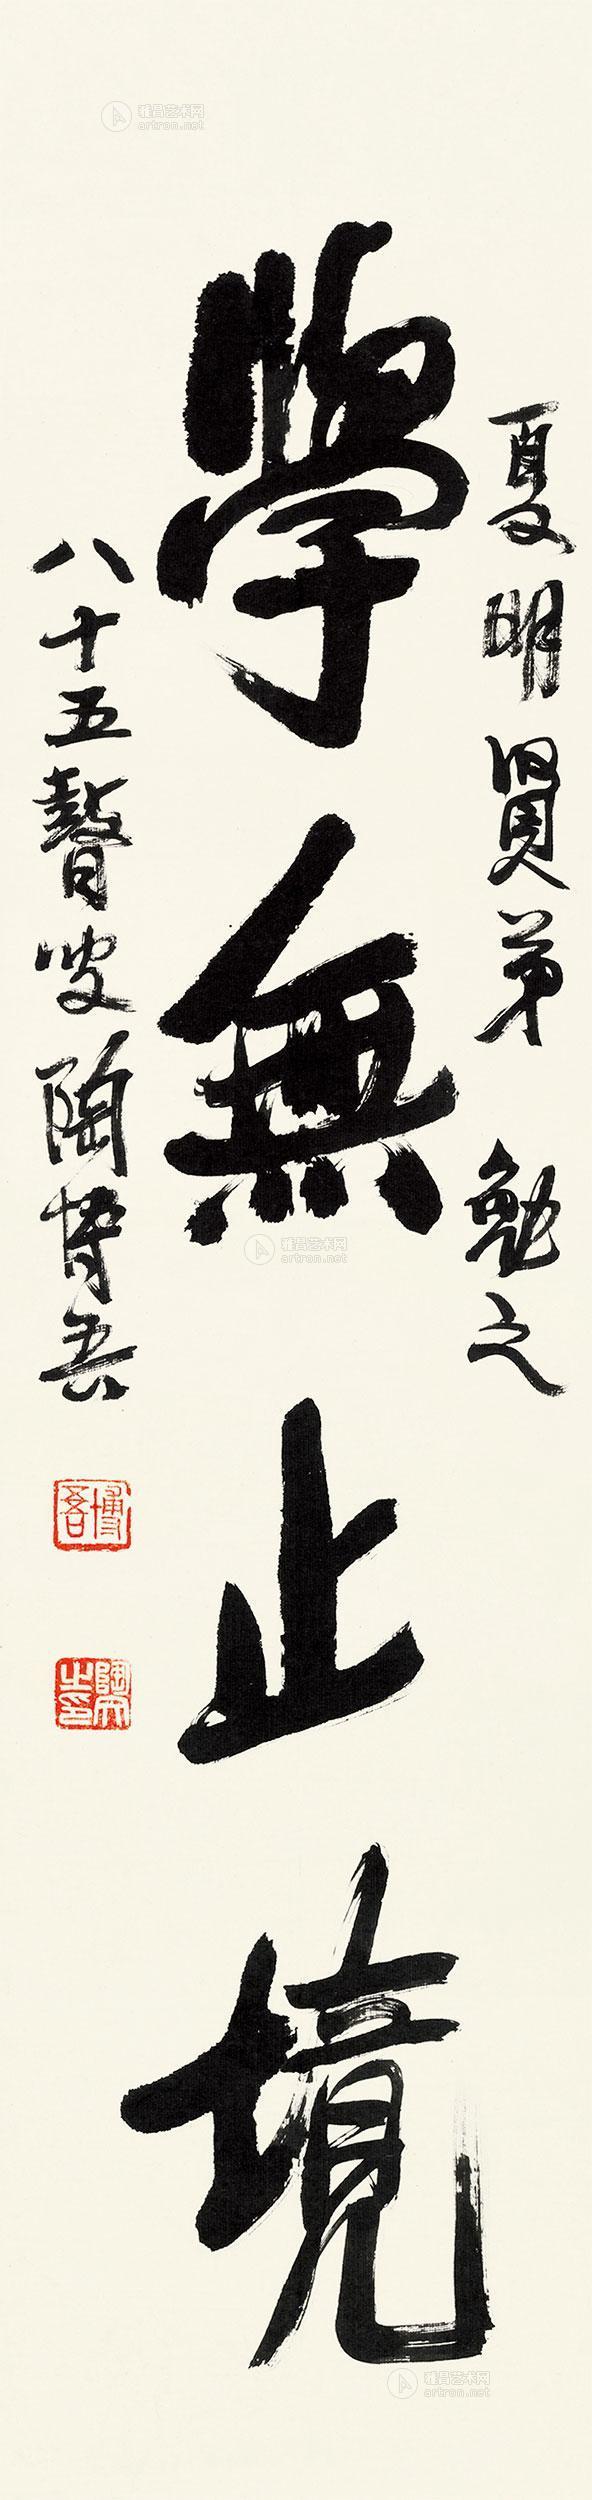 夏明賢弟 勉之
學無止境
八十五瞽叟陶博吾
博吾
陶文之印
雅昌艺术网
artron.net
雅昌艺术网
artron.net
雅昌艺术网
artron.net